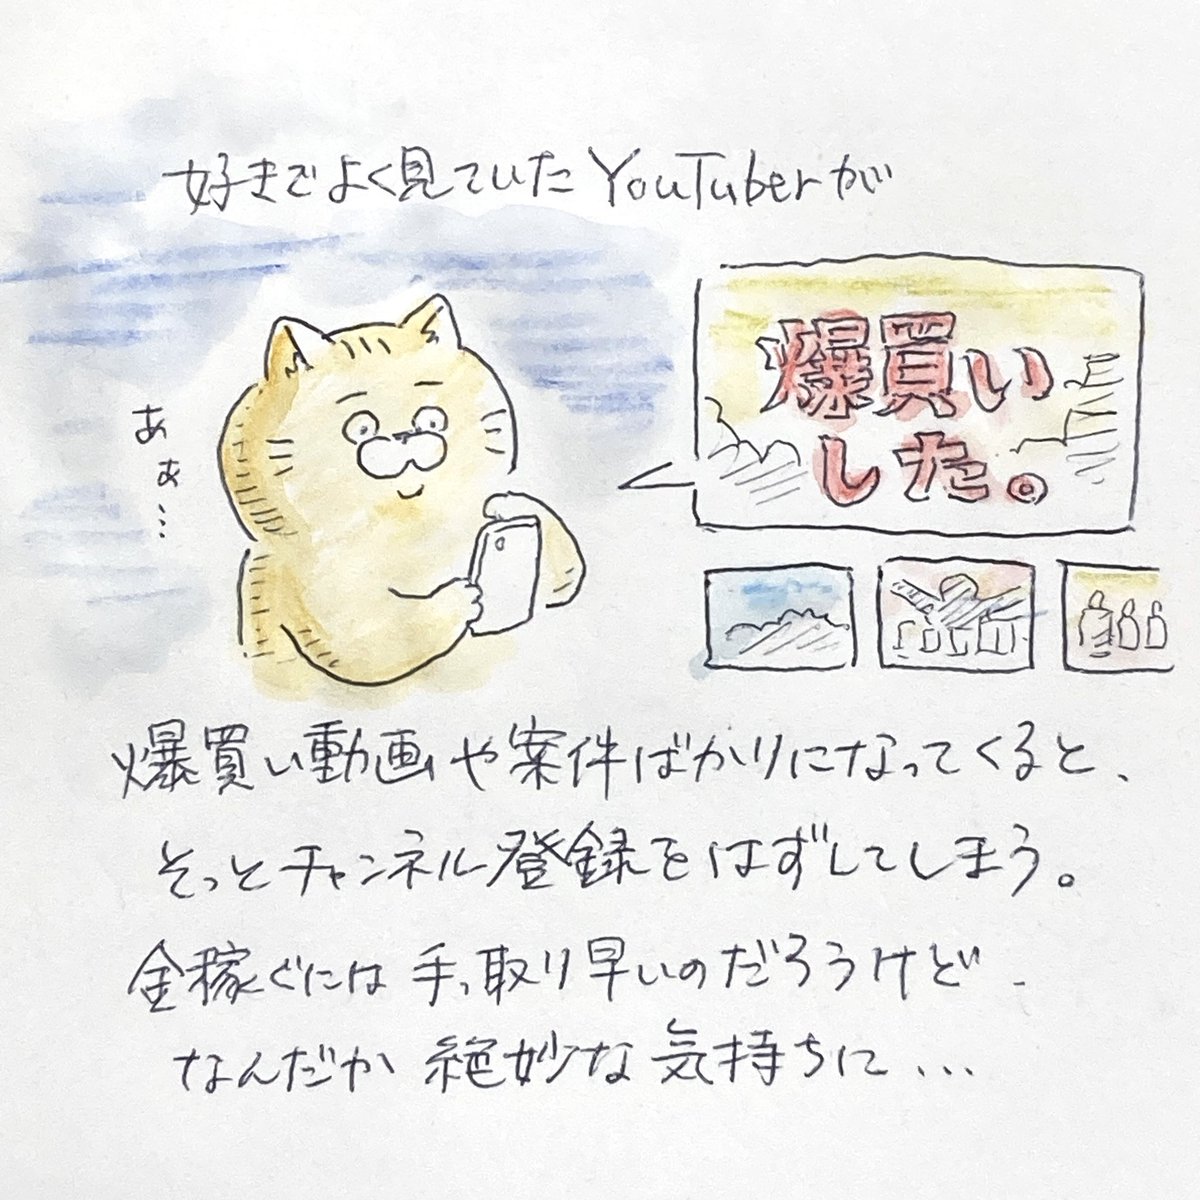 好きでよく見ていたYouTuberが
爆買い
した。
あぁ…
爆買い動画や案件ばかりになってくると、
そっとチャンネル登録をはずしてしまう。
金稼ぐには手っ取り早いのだろうけど、
なんだか絶妙な気持ちに...